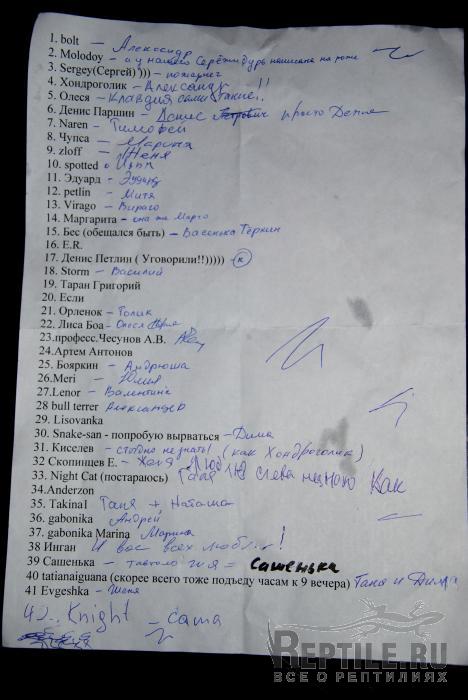 1. bolt — Александр
2. Molodoy — а у нашего Серёжи дурь написана на роже
3. Sergey(Сергей) ))) — пожарнег
4. Хондроголик — Александр!!
5. Олеся — Клавдия
6. Денис Паршин — Денис просто Деня
7. Naren — Тимофей
8. Чупса — Марина
9. zloff — Женя
10. spotted
11. Эдуард — Эдуард
12. petlin — Митя
13. Virago — Вираго
14. Маргарита — она же Марго
15. Бес (обещался быть) — Васенька Тёркин
16. E.R.
17. Денис Петлин ( Уговорили!!))))) — к
18. Storm — Василий
19. Таран Григорий
20. Если
21. Орленок — Толик
22. Лиса Боа — Олеся
23.професс.Чесунов А.В.
24.Артем Антонов
25. Бояркин — Андрюша
26.Meri — Юлия
27.Lenor — Валентина
28 bull terrer Александер
29. Lisovanka
30. Snake-san - попробую вырваться — Дима
31. Киселев — стыдно не знать! (как Хондроголика)
32 Скопинцев Е. — Женя
33. Night Cat (постараюсь) как
34.Anderzon
35. Takina1 Таня + Наташа
36. gabonika Андрей
37. gabonika Marina Марина
38 Инган И вас всех любл...!
39 Сашенька — = Сашенька
40 tatianaiguana (скорее всего тоже подъеду часам к 9 вечера) Таня и Дима
41 Evgeshka — Женя
42. Knight — Саша
REPTILE.RU
ВСЕ О РЕПТИЛИЯХ